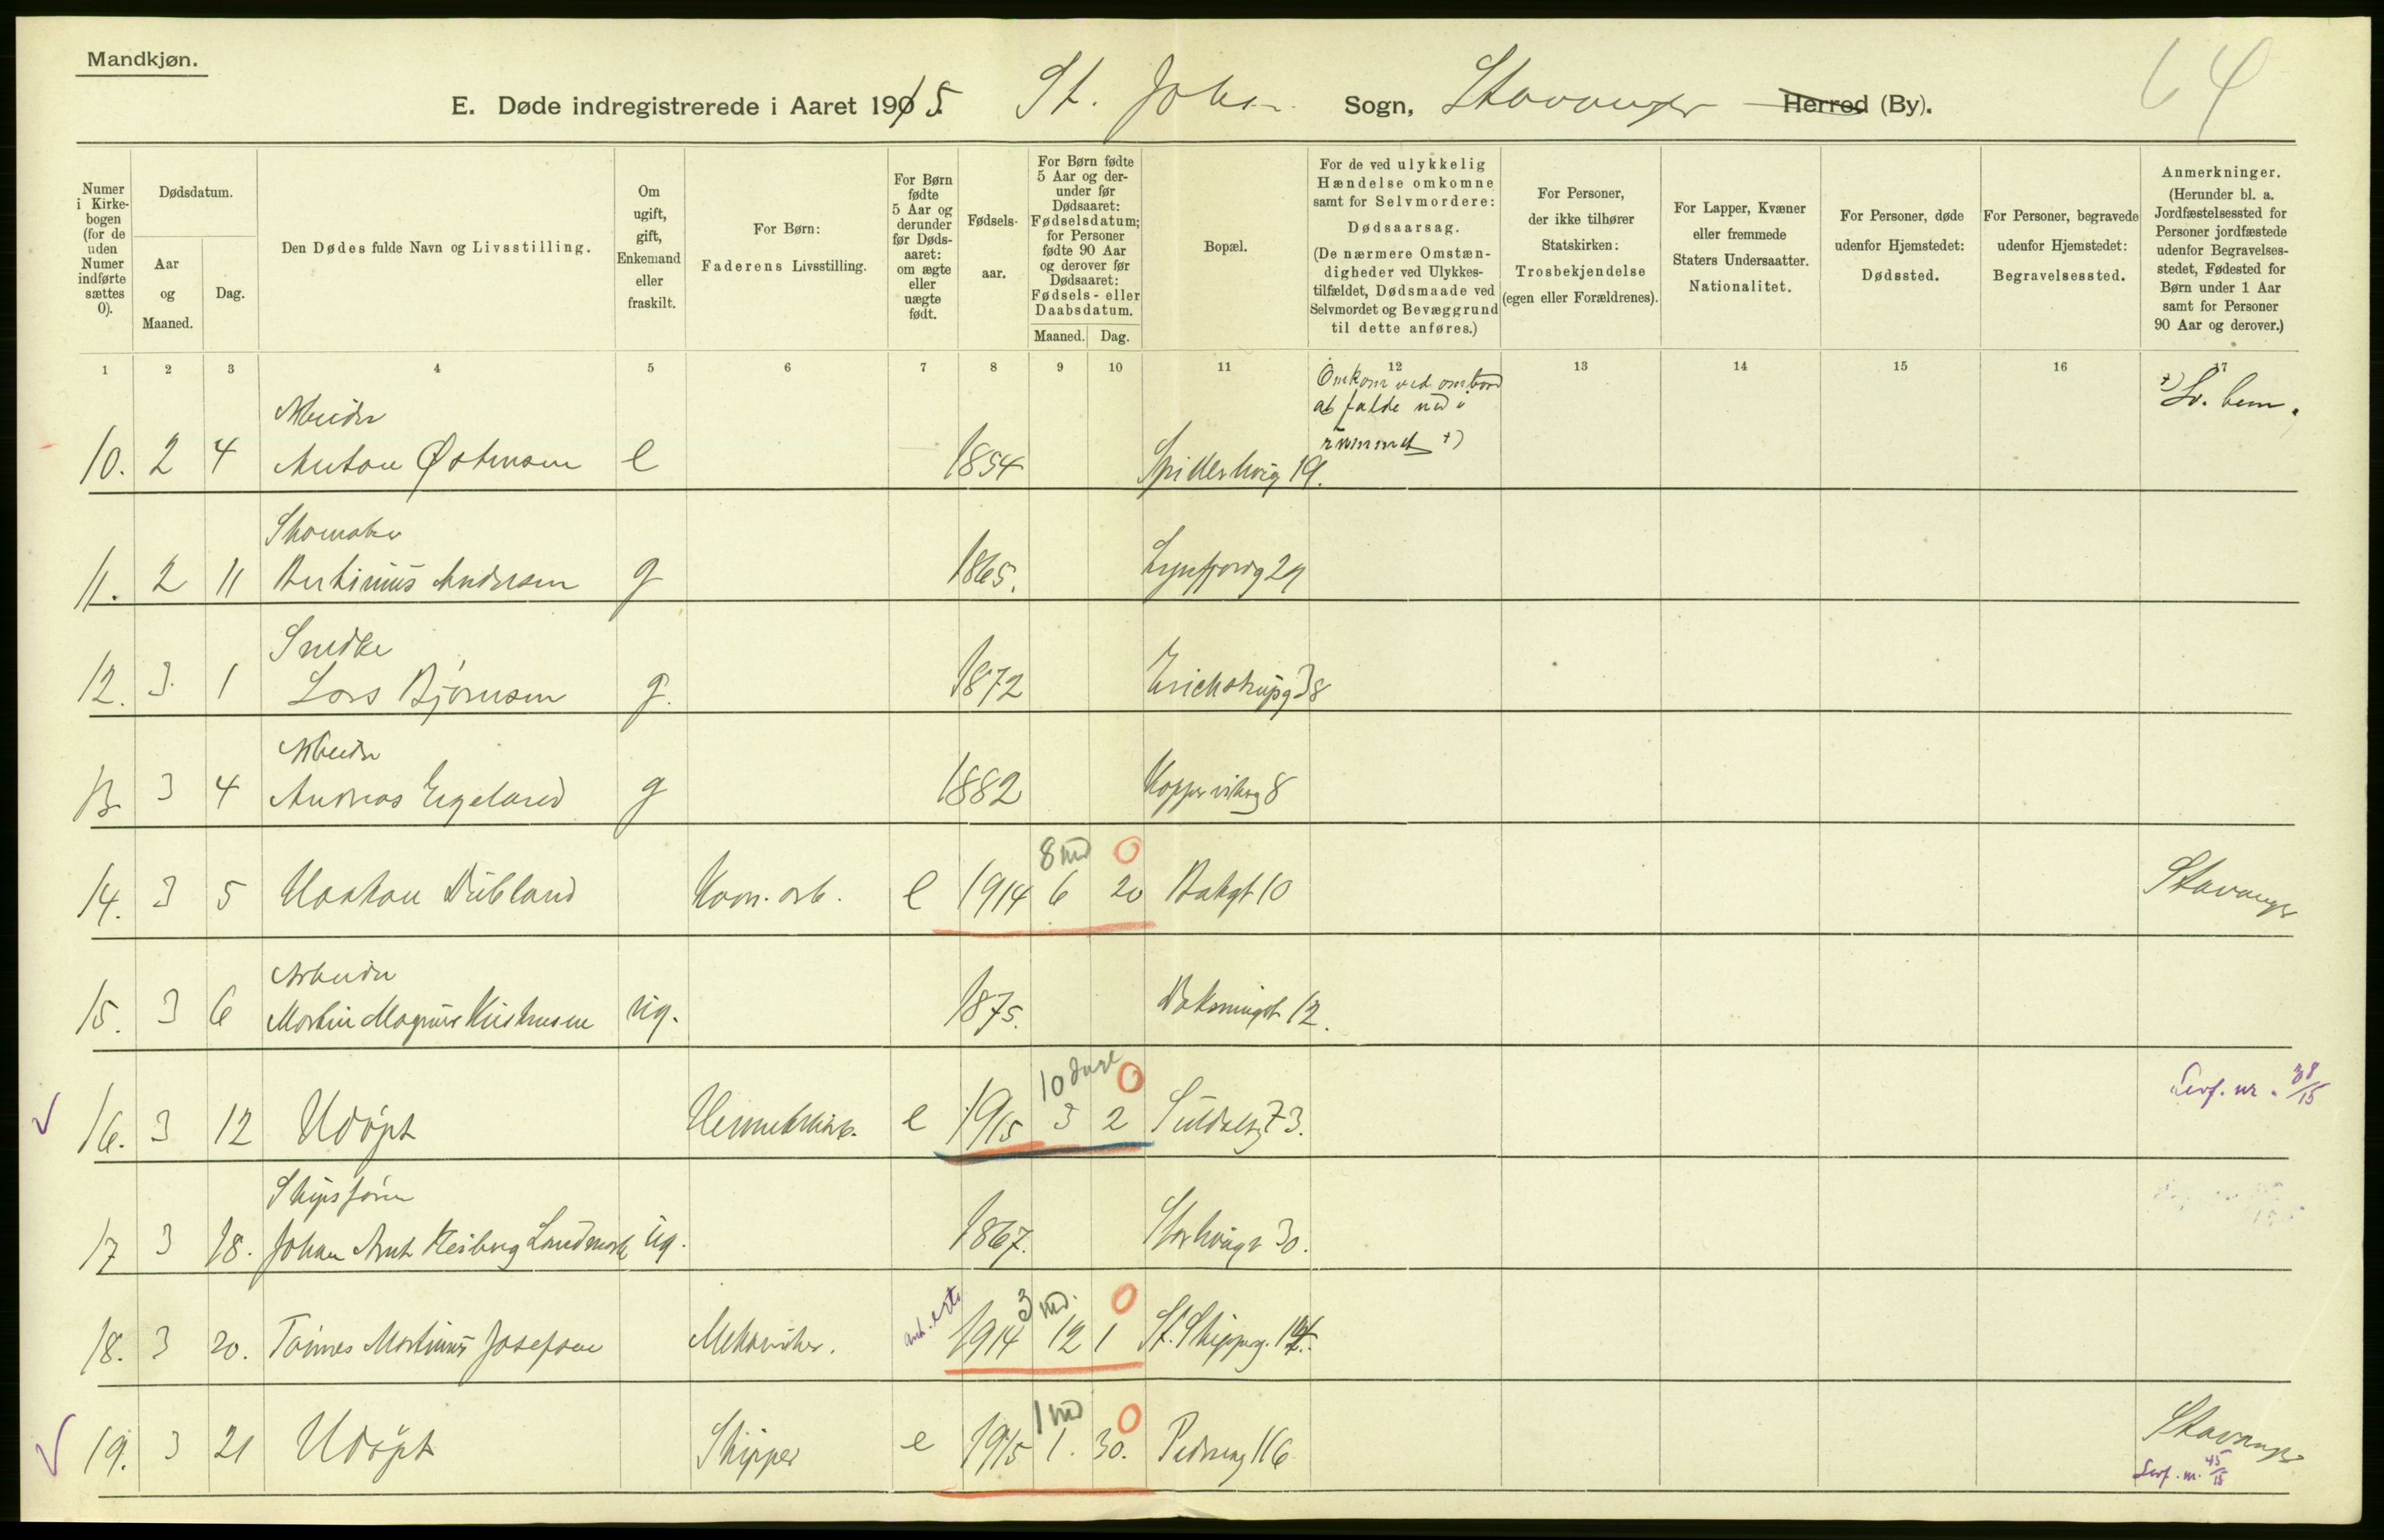 Mandkjøn.
64
E. Døde indregistrerede i Aaret 1915. St. Johan. Sogn, Stavanger Herred (By).
Numer i Kirke-bogen (for de uden Numer indførte sættes 0).
Dødsdatum.
Aar og Maaned.
Dag.
Den Dødes fulde Navn og Livsstilling.
Om ugift, gift, Enkemand eller fraskilt.
For Børn:
Faderens Livsstilling.
For Børn fødte 5 Aar og derunder før Døds-aaret: om ægte eller uægte født.
Fødsels-aar.
For Børn fødte 5 Aar og der-under før Dødsaaret: Fødselsdatum; for Personer fødte 90 Aar og derover før Dødsaaret: Fødsels- eller Daabsdatum.
Maaned. Dag.
Bopæl.
For de ved ulykkelig Hændelse omkomne samt for Selvmordere:
Dødsaarsag.
(De nærmere Omstæn-digheder ved Ulykkes-tilfældet, Dødsmaade ved Selvmordet og Bevæggrund til dette anføres.)
For Personer, der ikke tilhører Statskirken:
Trosbekjendelse
(egen eller Forældrenes).
For Lapper, Kvæner eller fremmede Staters Undersaatter.
Nationalitet.
For Personer, døde udenfor Hjemstedet:
Dødssted.
For Personer, begravede udenfor Hjemstedet:
Begravelsessted.
Anmerkninger.
(Herunder bl. a. Jordfæstelsessted for Personer jordfæstede udenfor Begravelses-stedet, Fødested for Børn under 1 Aar samt for Personer 90 Aar og derover.)
1 2 3 4 5 6 7 8 9 10 11 12 13 14 15 16 17
Arbeider
Omkom ved ombord
at falde ned i
rummet +)
10. 2 4 Anton Østensen e 1854 19.
Skomaker
11. 2 11 Bertinius Andersen g 1865. Lysefjordg 29
Snedker
12. 3. 1 Lars Bjørnsen g. 1872 Erichstrupg 38
Arbeider
13 3 4 Andreas Egeland g 1882 Koppervikeg 8
8 md 0
14. 3 5 Haakon Dübland e 1914 6 20 Bakgt 10 Stavanger
Arbeider
15. 3 6 Martin Magnus Kristensen ug. 1875. 12.
10 dage 0
16. 3 12 Udøpt e 1915 3 2 Suldalsg 73. Levf. nr. 38/15
Skipsfører
17 3 18. Johan Arnt Landmark ug. 1867. 30.
3 md. 0
18. 3 20. Tønnes Martinius Josefsen Mekaniker. ant. ekte 1914 12 1 St. Skipperg.
1 md 0
19. 3 21 Udøpt Skipper e 1915 1. 30. Pedersg 116 Stavanger
Levf. nr. 45/15